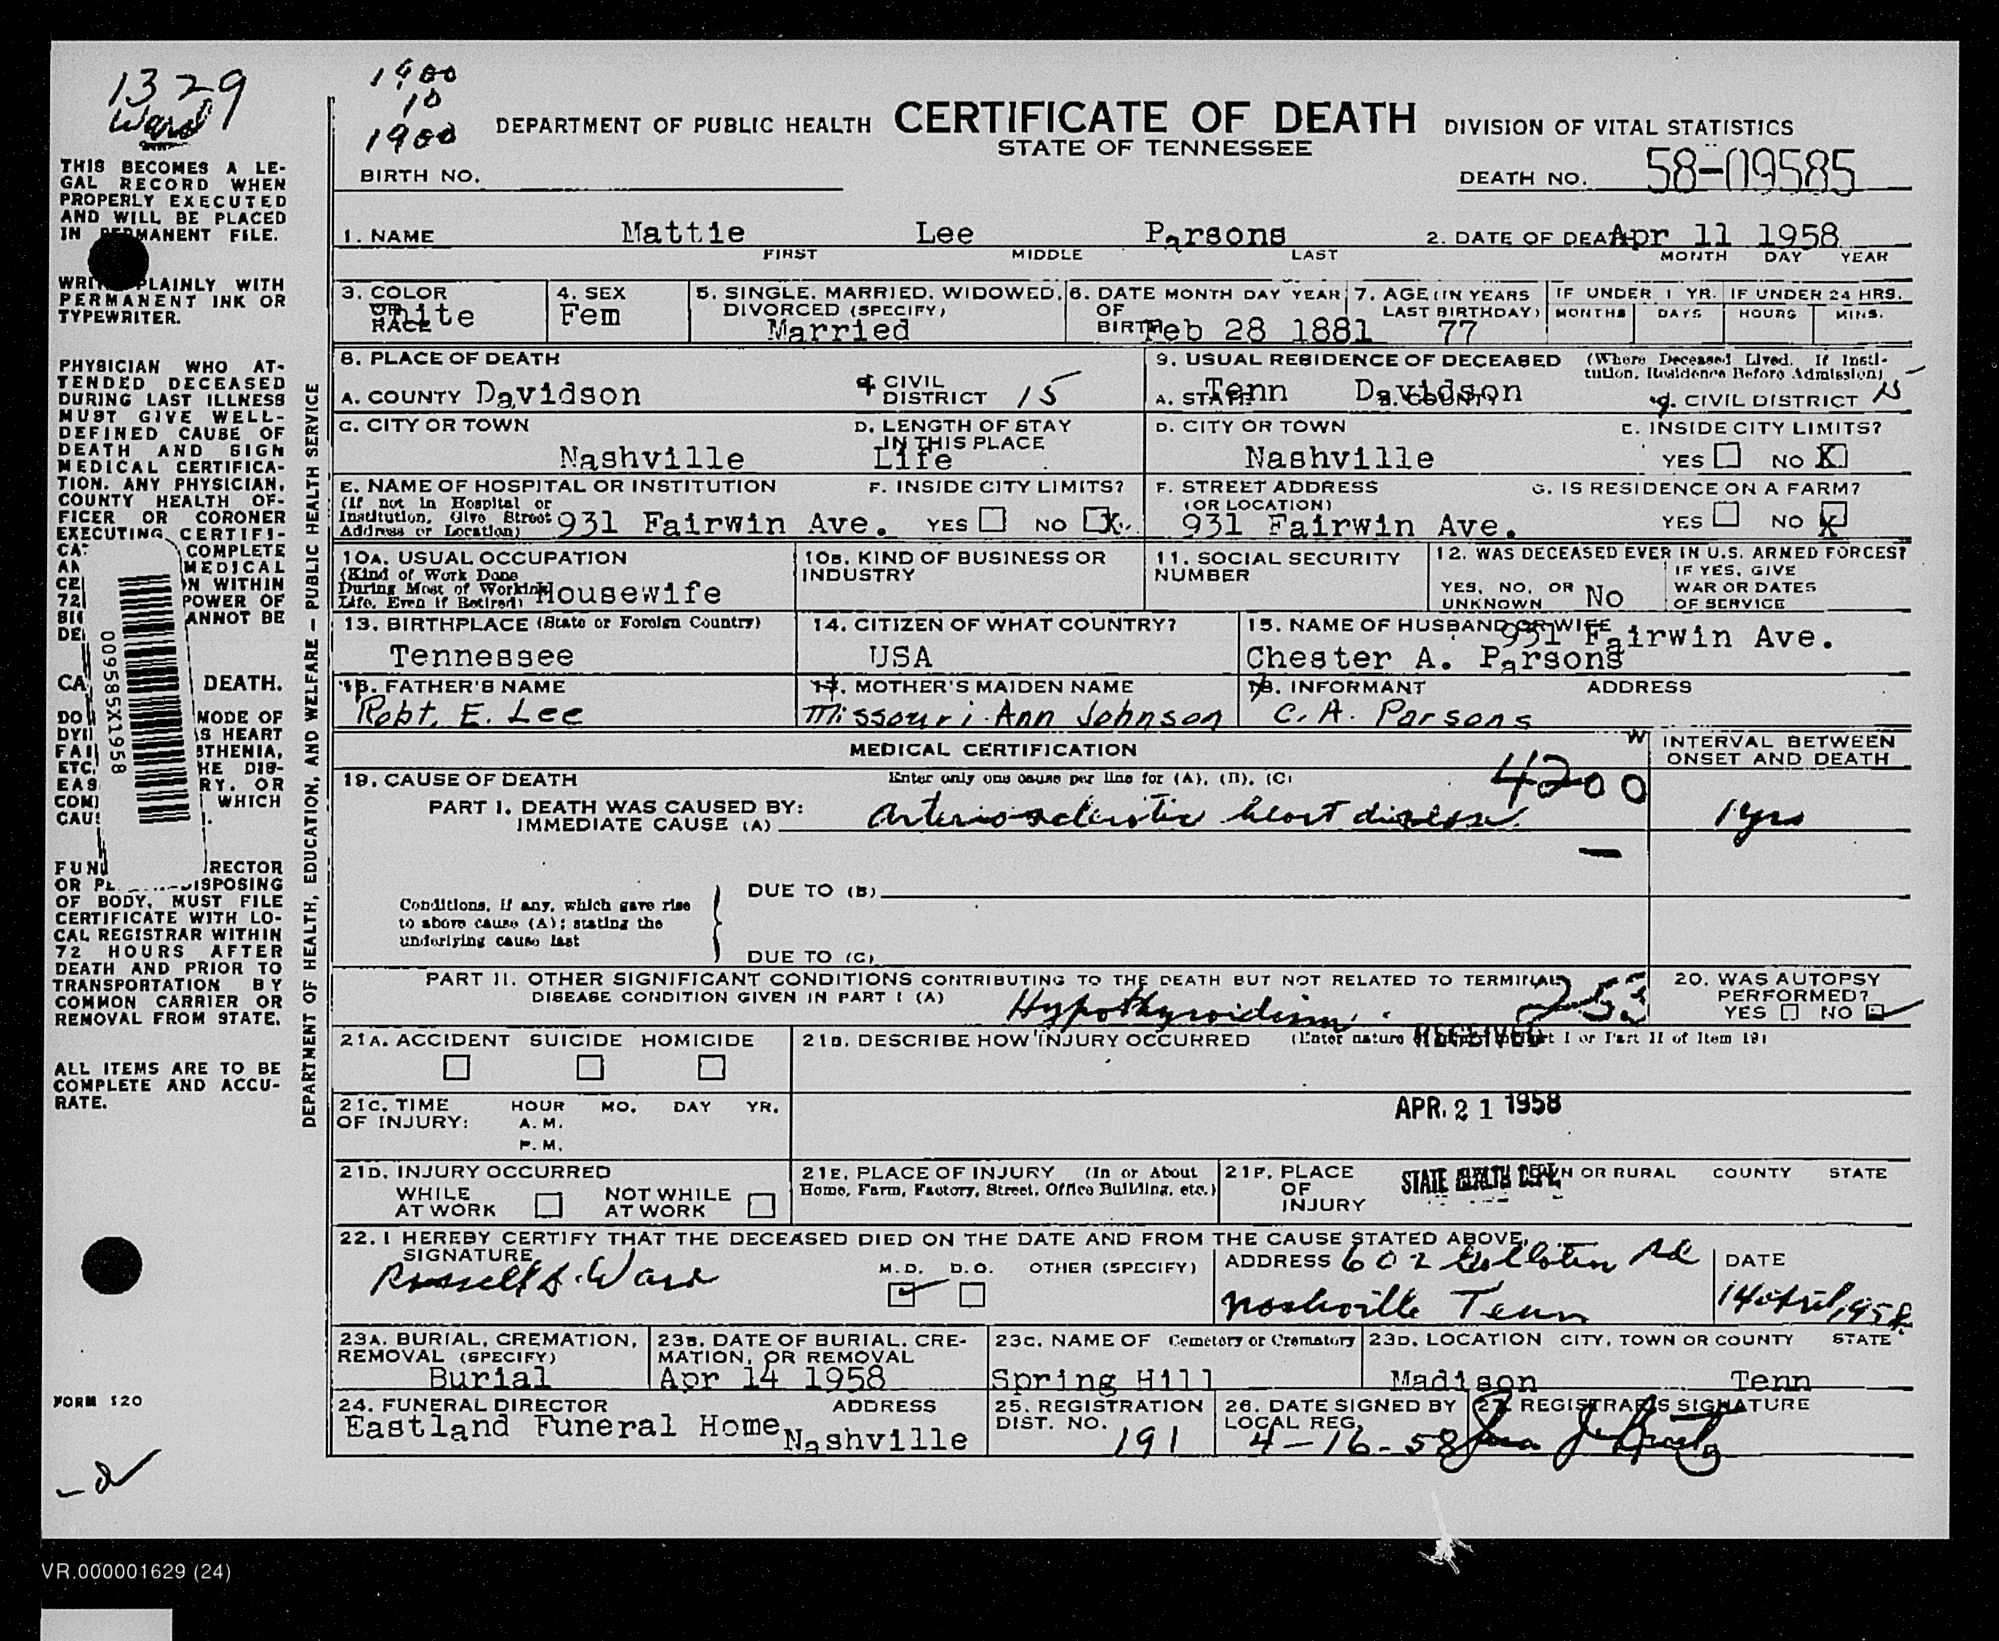 1329
Ward
1900
10
1900
DEPARTMENT OF PUBLIC HEALTH CERTIFICATE OF DEATH DIVISION OF VITAL STATISTICS
STATE OF TENNESSEE
BIRTH NO.
DEATH NO. 58-09585
THIS BECOMES A LE-
GAL RECORD WHEN
PROPERLY EXECUTED
AND WILL BE PLACED
IN PERMANENT FILE.
WRITE PLAINLY WITH
PERMANENT INK OR
TYPEWRITER.
PHYSICIAN WHO AT-
TENDED DECEASED
DURING LAST ILLNESS
MUST GIVE WELL-
DEFINED CAUSE OF
DEATH AND SIGN
MEDICAL CERTIFICA-
TION. ANY PHYSICIAN,
COUNTY HEALTH OF-
FICER OR CORONER
EXECUTING CERTIFI-
COMPLETE
MEDICAL
WITHIN
72 POWER OF
DEATH.
MODE OF
HEART
WHICH
009585X1958
OF BODY, MUST FILE
CERTIFICATE WITH LO-
CAL REGISTRAR WITHIN
72 HOURS AFTER
DEATH AND PRIOR TO
TRANSPORTATION BY
COMMON CARRIER OR
REMOVAL FROM STATE.
ALL ITEMS ARE TO BE
COMPLETE AND ACCU-
RATE.
FORM 120
DEPARTMENT OF HEALTH, EDUCATION, AND WELFARE — PUBLIC HEALTH SERVICE
1. NAME Mattie Lee Parsons 2. DATE OF DEATH Apr 11 1958
FIRST MIDDLE LAST MONTH DAY YEAR
3. COLOR OR RACE White
4. SEX Fem
5. SINGLE, MARRIED, WIDOWED, DIVORCED (SPECIFY) Married
6. DATE OF BIRTH MONTH DAY YEAR Feb 28 1881
7. AGE (IN YEARS LAST BIRTHDAY) 77
IF UNDER 1 YR. MONTHS DAYS
IF UNDER 24 HRS. HOURS MINS.
8. PLACE OF DEATH
A. COUNTY Davidson CIVIL DISTRICT 15
9. USUAL RESIDENCE OF DECEASED (Where Deceased Lived. If Insti-
tution, Residence Before Admission)
A. STATE Tenn B. COUNTY Davidson CIVIL DISTRICT 15
C. CITY OR TOWN Nashville
D. LENGTH OF STAY IN THIS PLACE Life
D. CITY OR TOWN Nashville
E. INSIDE CITY LIMITS? YES NO X
E. NAME OF HOSPITAL OR INSTITUTION
(If not in Hospital or
Institution, Give Street
Address or Location) 931 Fairwin Ave.
F. INSIDE CITY LIMITS? YES NO X
F. STREET ADDRESS (OR LOCATION) 931 Fairwin Ave.
G. IS RESIDENCE ON A FARM? YES NO X
10A. USUAL OCCUPATION
(Kind of Work Done
During Most of Working
Life, Even if Retired) Housewife
10B. KIND OF BUSINESS OR INDUSTRY
11. SOCIAL SECURITY NUMBER
12. WAS DECEASED EVER IN U.S. ARMED FORCES?
YES, NO, OR UNKNOWN No
IF YES, GIVE WAR OR DATES OF SERVICE
13. BIRTHPLACE (State or Foreign Country) Tennessee
14. CITIZEN OF WHAT COUNTRY? USA
15. NAME OF HUSBAND OR WIFE 931 Fairwin Ave.
Chester A. Parsons
16. FATHER'S NAME Robt. E. Lee
17. MOTHER'S MAIDEN NAME Missouri Ann Johnson
18. INFORMANT ADDRESS C. A. Parsons
MEDICAL CERTIFICATION
INTERVAL BETWEEN
ONSET AND DEATH
19. CAUSE OF DEATH Enter only one cause per line for (A), (B), (C)
4200
PART I. DEATH WAS CAUSED BY:
IMMEDIATE CAUSE (A) Arteriosclerotic heart disease 1 yrs
Conditions, if any, which gave rise
to above cause (A); stating the
underlying cause last
DUE TO (B)
DUE TO (C)
PART II. OTHER SIGNIFICANT CONDITIONS CONTRIBUTING TO THE DEATH BUT NOT RELATED TO TERMINAL
DISEASE CONDITION GIVEN IN PART I (A) Hypothyroidism 253
20. WAS AUTOPSY
PERFORMED?
YES NO
21A. ACCIDENT SUICIDE HOMICIDE
21B. DESCRIBE HOW INJURY OCCURRED (Enter nature of injury in Part I or Part II of Item 19)
RECEIVED
APR. 21 1958
STATE HEALTH DEPT.
21C. TIME OF INJURY: HOUR MO. DAY YR.
A.M.
P.M.
21D. INJURY OCCURRED
WHILE AT WORK NOT WHILE AT WORK
21E. PLACE OF INJURY (In or About
Home, Farm, Factory, Street, Office Building, etc.)
21F. PLACE OF INJURY TOWN OR RURAL COUNTY STATE
22. I HEREBY CERTIFY THAT THE DECEASED DIED ON THE DATE AND FROM THE CAUSE STATED ABOVE.
SIGNATURE Russell S. Ward M.D. D.O. OTHER (SPECIFY)
ADDRESS 602 Gallatin Rd
Nashville Tenn
DATE 14 April, 1958
23A. BURIAL, CREMATION, REMOVAL (SPECIFY) Burial
23B. DATE OF BURIAL, CRE-
MATION, OR REMOVAL Apr 14 1958
23C. NAME OF Cemetery or Crematory Spring Hill
23D. LOCATION CITY, TOWN OR COUNTY STATE Madison Tenn
24. FUNERAL DIRECTOR ADDRESS
Eastland Funeral Home Nashville
25. REGISTRATION DIST. NO. 191
26. DATE SIGNED BY LOCAL REG. 4-16-58
27. REGISTRAR'S SIGNATURE
VR.000001629 (24)